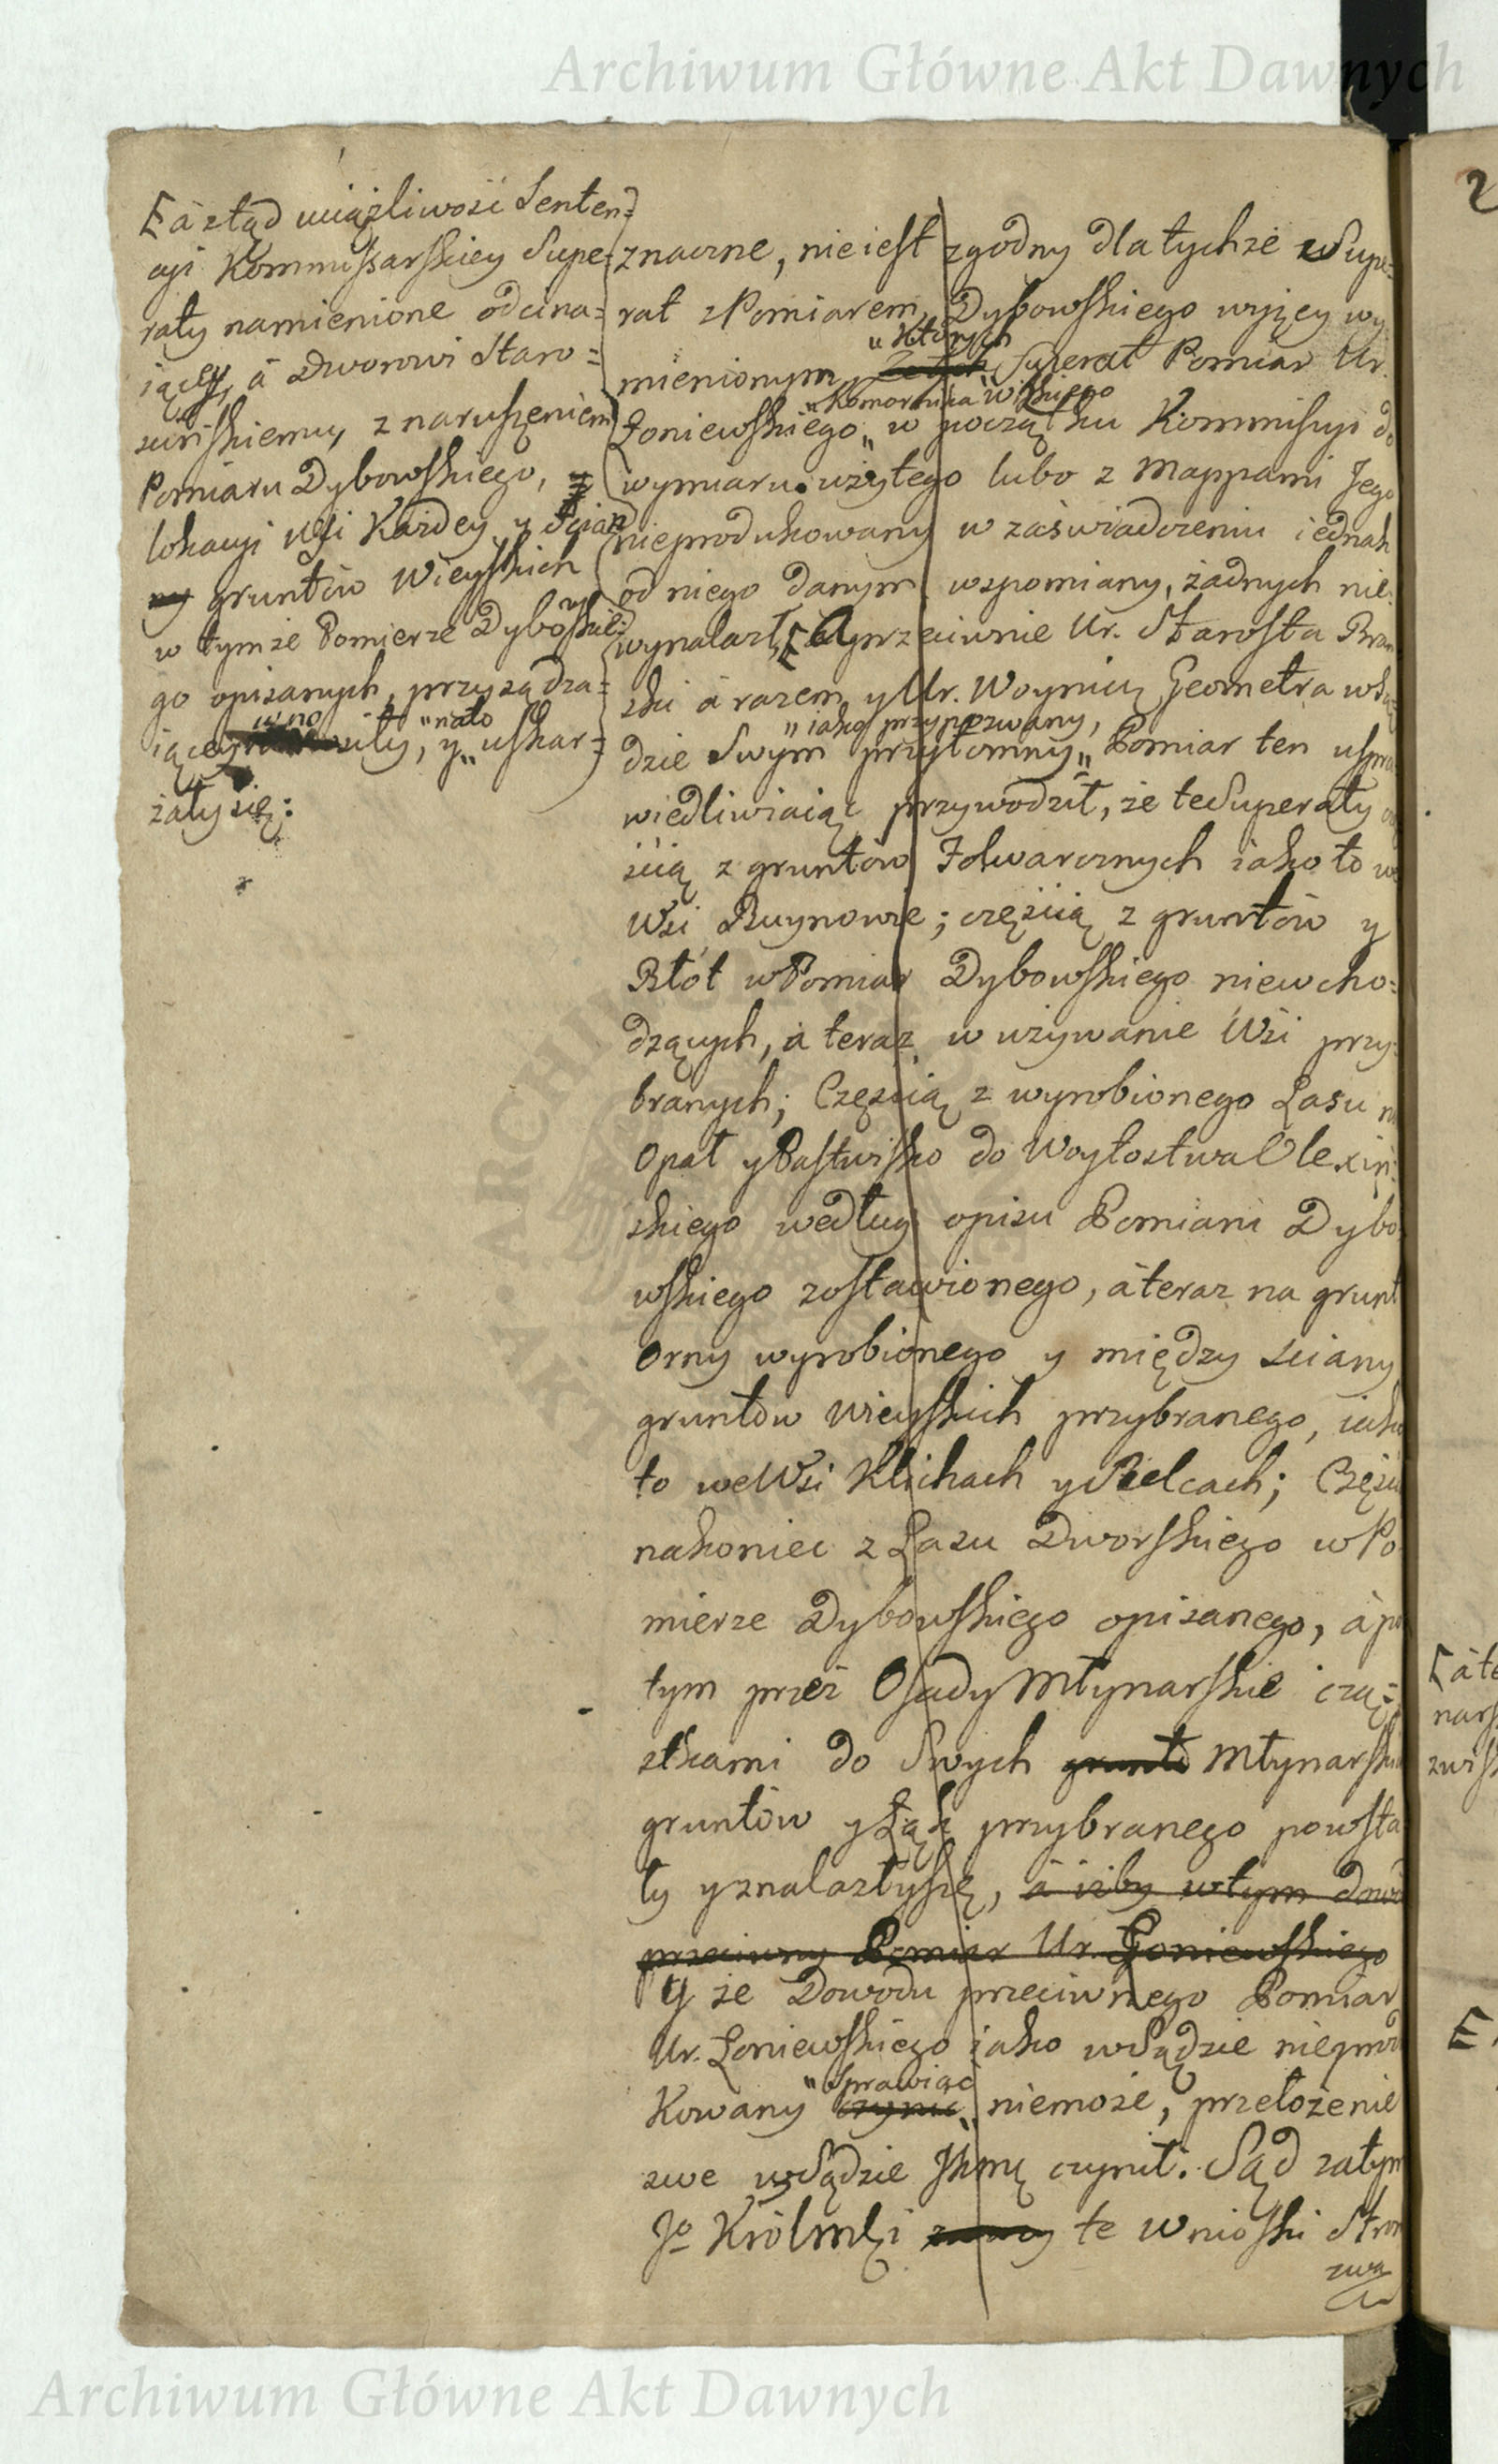 Archiwum Główne Akt Dawnych
E à ztąd uciążliwość Senten=
cyi Kommissarskiey Supe=
raty namienione odcina=
iącey, à Dworowi Staro=
scińskiemu, z naruszeniem
Pomiaru Dybowskiego,
lokacyi Wsi Każdey y Scian
gruntów Wieyskich
w tymże Pomierze Dybowskie=
go opisanych, przysądza=
iącey wnosiły, y „nato uskar=
żały się:
znaczne, nie iest zgodny dla tychże Supe=
rat z Pomiarem Dybowskiego wyżey wy=
mienionym, „Których Superat Pomiar Ur.
Łoniewskiego „Komornika Wiskiego „ w początku Kommissyi do
wymiaru użytego lubo z Mappami Jego
nieprodukowany w zaświadczeniu iednak
od niego danym wspomiany, żadnych nie=
wynalazł, E A przeciwnie Ur. Starosta Bran
ski à razem y Ur. Woynicz Geometra w Są
dzie Swym „iako przypozwany, przytomny „ Pomiar ten uspra
wiedliwiaiąc przywodził, że te Superaty
ścią z gruntów Folwarcznych iako to we
Wsi Bujnowie; częścią z gruntów y
Błót w Pomiar Dybowskiego niewcho=
dzących, à teraz w używanie Wsi przy=
branych; Częścią z wyrobionego Lasu na
Opał y Pastwisko do Woytostwa Olexiń=
skiego według opisu Pomiaru Dybo=
wskiego zostawionego, à teraz na grunt
Orny wyrobionego y między sciany
gruntów Wieyskich przybranego, iako
to we Wsi Klichach y Pielcach; Częścią
nakoniec z Lasu Dworskiego w Po
mierze Dybowskiego opisanego, à po
tym przez Osady Młynarskie czą=
stkami do Swych grunto Młynarskich
gruntów y Łąk przybranego powsta
ły y znalazły się, à iżby w tym Dowod
przeciwny Pomiar Ur. Łoniewskiego
Y że Dowodu przeciwnego Pomiar
Ur. Łoniewskiego iako w Sądzie nieprodu
Kowany czynić „Sprawiać „ niemoże, przełożenie
swe w Sądzie JKMci czynił. Sąd zatym
Jo KrólMci te Wnioski Stron
zwa
2
E à te
nars
zwis
E
Archiwum Główne Akt Dawnych